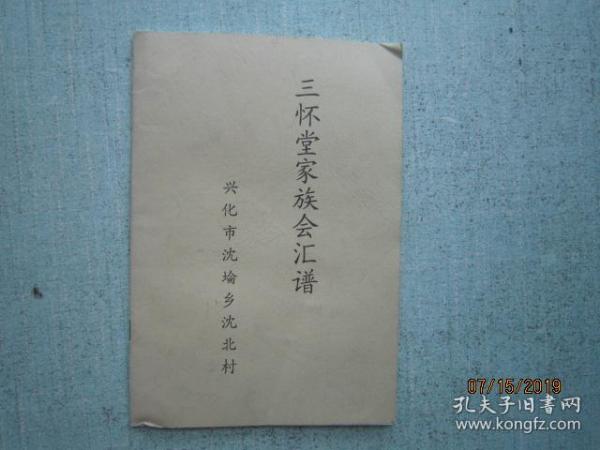 三怀堂家族会汇谱
兴化市沈埨乡沈北村
07/15/2019
孔夫子旧书网
www.kongfz.com